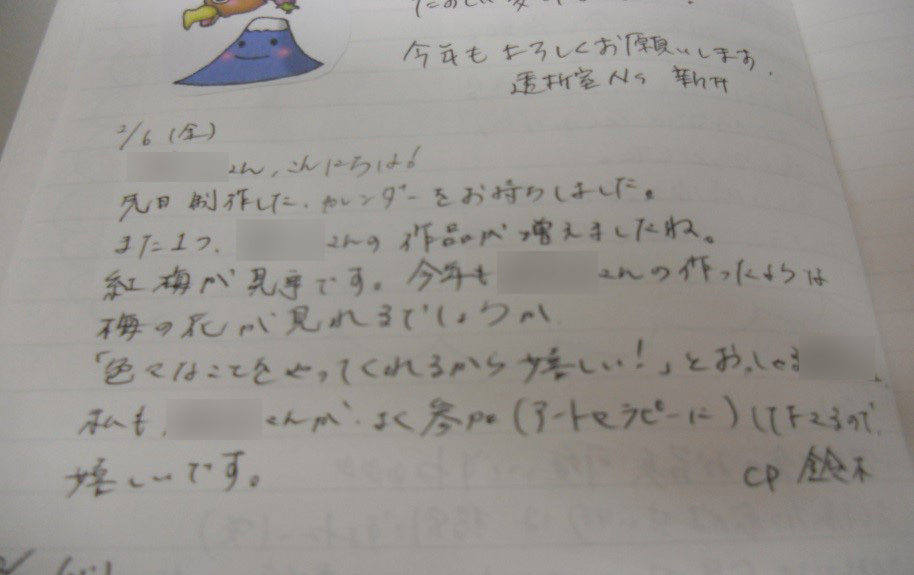 今年もよろしくお願いします.
透析室Ns 新井
2/6 (金)
さん、こんにちは!
先日制作した、カレンダーをお持ちしました。
また1つ、さんの作品が増えましたね。
紅梅が見事です。今年もさんの作ったような
梅の花が見れるでしょうか
「色々なことをやってくれるから嬉しい!」とおっしゃる
私も、さんが、よく参加(アートセラピーに)して下さるので、
嬉しいです。
CP 鈴木